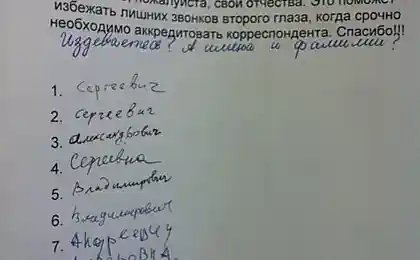 пожалуйста, свои отчества. Это поможет
избежать лишних звонков второго глаза, когда срочно
необходимо аккредитовать корреспондента. Спасибо!!!
Издеваетесь? А имена и фамилии?
1. Сергеевич
2. Сергеевич
3. Александрович
4. Сергеевна
5. Владимирович
6. Владимирович
7. Андреевич